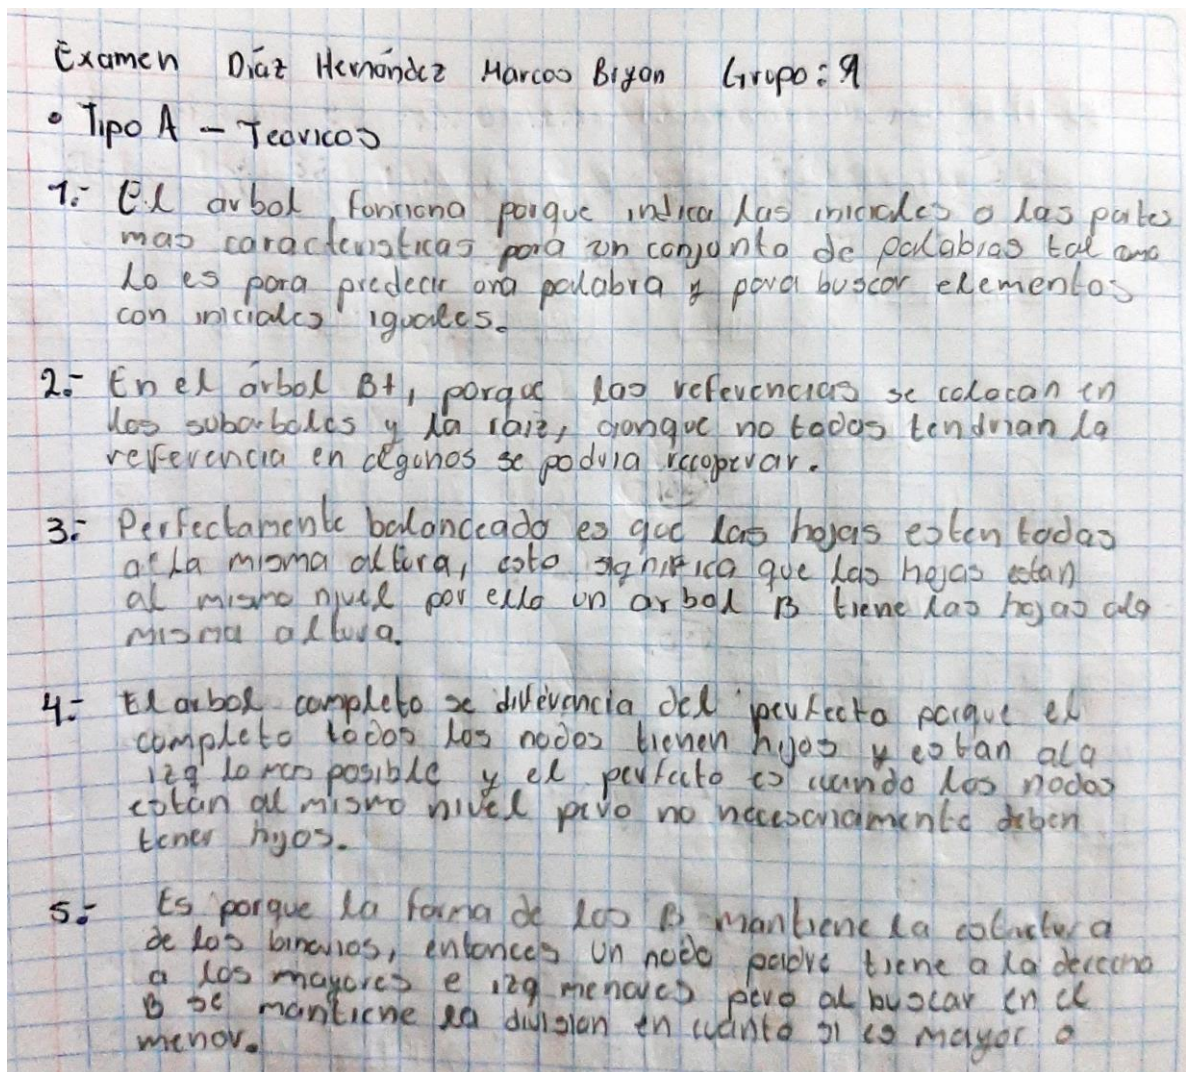 Examen Díaz Hernández Marcos Bryan Grupo: 9
• Tipo A - Teoricos
1.- El arbol funciona porque indica las iniciales o las partes
mas caracteristicas para un conjunto de palabras tal como
lo es para predecir una palabra y para buscar elementos
con iniciales iguales.
2.- En el árbol B+, porque las referencias se colocan en
los subarboles y la raiz, aunque no todas tendrian la
referencia en algunos se podria recuperar.
3.- Perfectamente balanceado es que las hojas esten todas
a la misma altura, esto significa que las hojas estan
al mismo nivel por ello un arbol B tiene las hojas ala
misma altura.
4.- El arbol completo se diferencia del perfecto porque el
completo todos los nodos tienen hijos y estan ala
izq lo mas posible y el perfecto es cuando los nodos
estan al mismo nivel pero no necesariamente deben
tener hijos.
5.- Es porque la forma de los B mantiene la estructura
de los binarios, entonces un nodo padre tiene a la derecha
a los mayores e izq menores pero al buscar en el
B se mantiene la division en cuanto si es mayor o
menor.